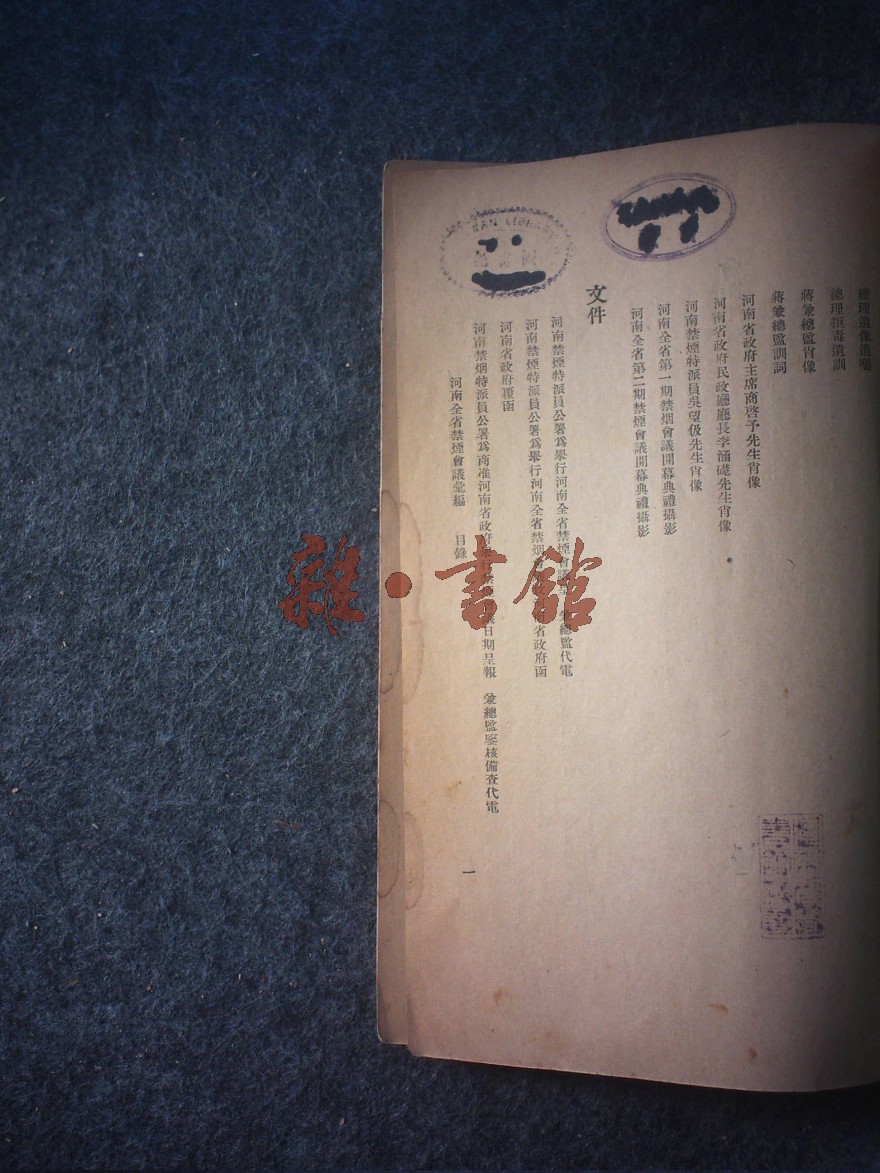 總理遺像遺囑
總理拒毒遺訓
蔣兼總監肖像
蔣兼總監訓詞
河南省政府主席商啓予先生肖像
河南省政府民政廳廳長李涵礎先生肖像
河南禁煙特派員吳望伋先生肖像
河南全省第一期禁烟會議開幕典禮攝影
河南全省第二期禁煙會議開幕典禮攝影
文件
河南禁煙特派員公署爲舉行河南全省禁煙會議呈 兼總監代電
河南禁煙特派員公署爲舉行河南全省禁烟會 省政府函
河南省政府覆函
河南禁烟特派員公署爲商准河南省政府 日期呈報 兼總監鑒核備查代電
河南全省禁煙會議彙編 目錄
一
LIBRARY
雜·書館